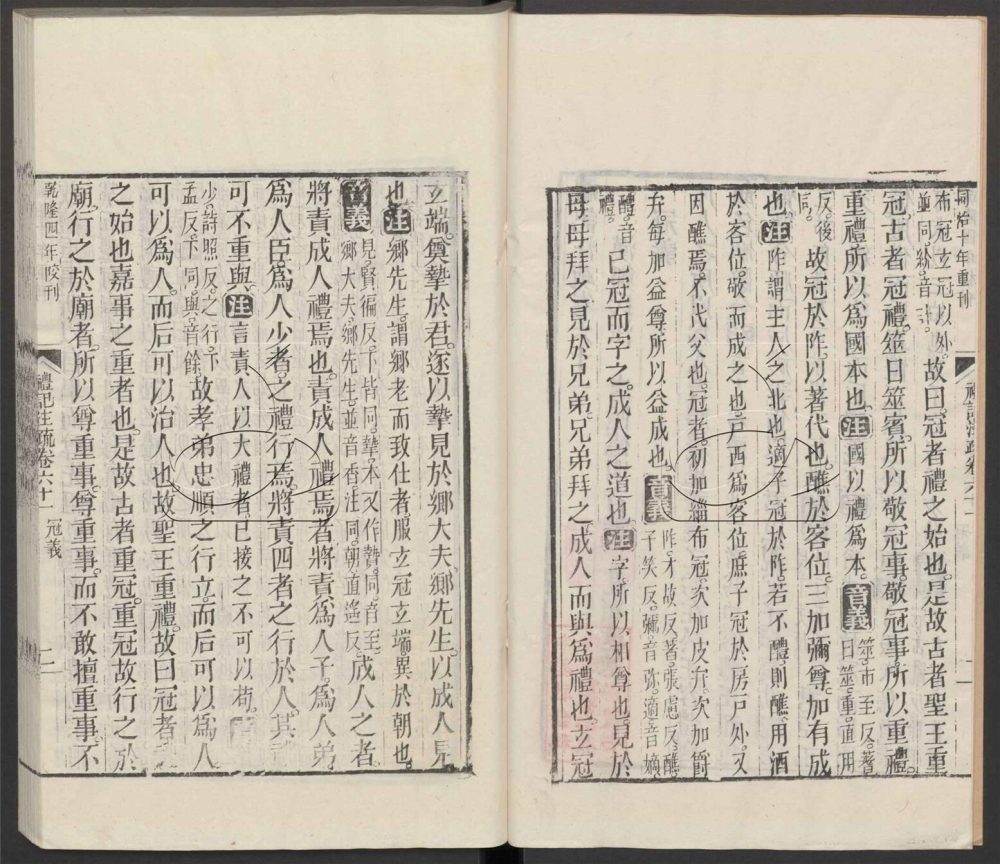 同治十年重刊
禮記注疏卷六十一
一
布冠玄冠以外
並同紒音計
故曰冠者禮之始也是故古者聖王重
冠古者冠禮筮日筮賓所以敬冠事敬冠事所以重禮
重禮所以爲國本也注國以禮爲本音義
筮市至反蓍
日筮重直用
反後
同
故冠於阼以著代也醮於客位三加彌尊加有成
也注阼謂主人之北也適子冠於阼若不醴則醮用酒
於客位敬而成之也戸西爲客位庶子冠於房戸外又
因醮焉不代父也冠者初加緇布冠次加皮弁次加爵
弁每加益尊所以益成也音義
阼才故反著張慮反醮
子笑反彌音弥適音嫡
醴音
禮
已冠而字之成人之道也注字所以相尊也見於
母母拜之見於兄弟兄弟拜之成人而與爲禮也玄冠
玄端奠摯於君遂以摯見於鄉大夫鄉先生以成人見
也注鄉先生謂鄉老而致仕者服玄冠玄端異於朝也
音義
見賢徧反下皆同摯本又作贄同音至
鄉大夫鄉先生並音香注同朝直遙反
成人之者
將責成人禮焉也責成人禮焉者將責爲人子爲人弟
爲人臣爲人少者之禮行焉將責四者之行於人其
可不重與注言責人以大禮者已接之不可以苟
少詩照反之行下
孟反下同與音餘
故孝弟忠順之行立而后可以爲人
可以爲人而后可以治人也故聖王重禮故曰冠者
之始也嘉事之重者也是故古者重冠重冠故行之於
廟行之於廟者所以尊重事尊重事而不敢擅重事不
乾隆四年校刊
禮記注疏卷六十一 冠義
二